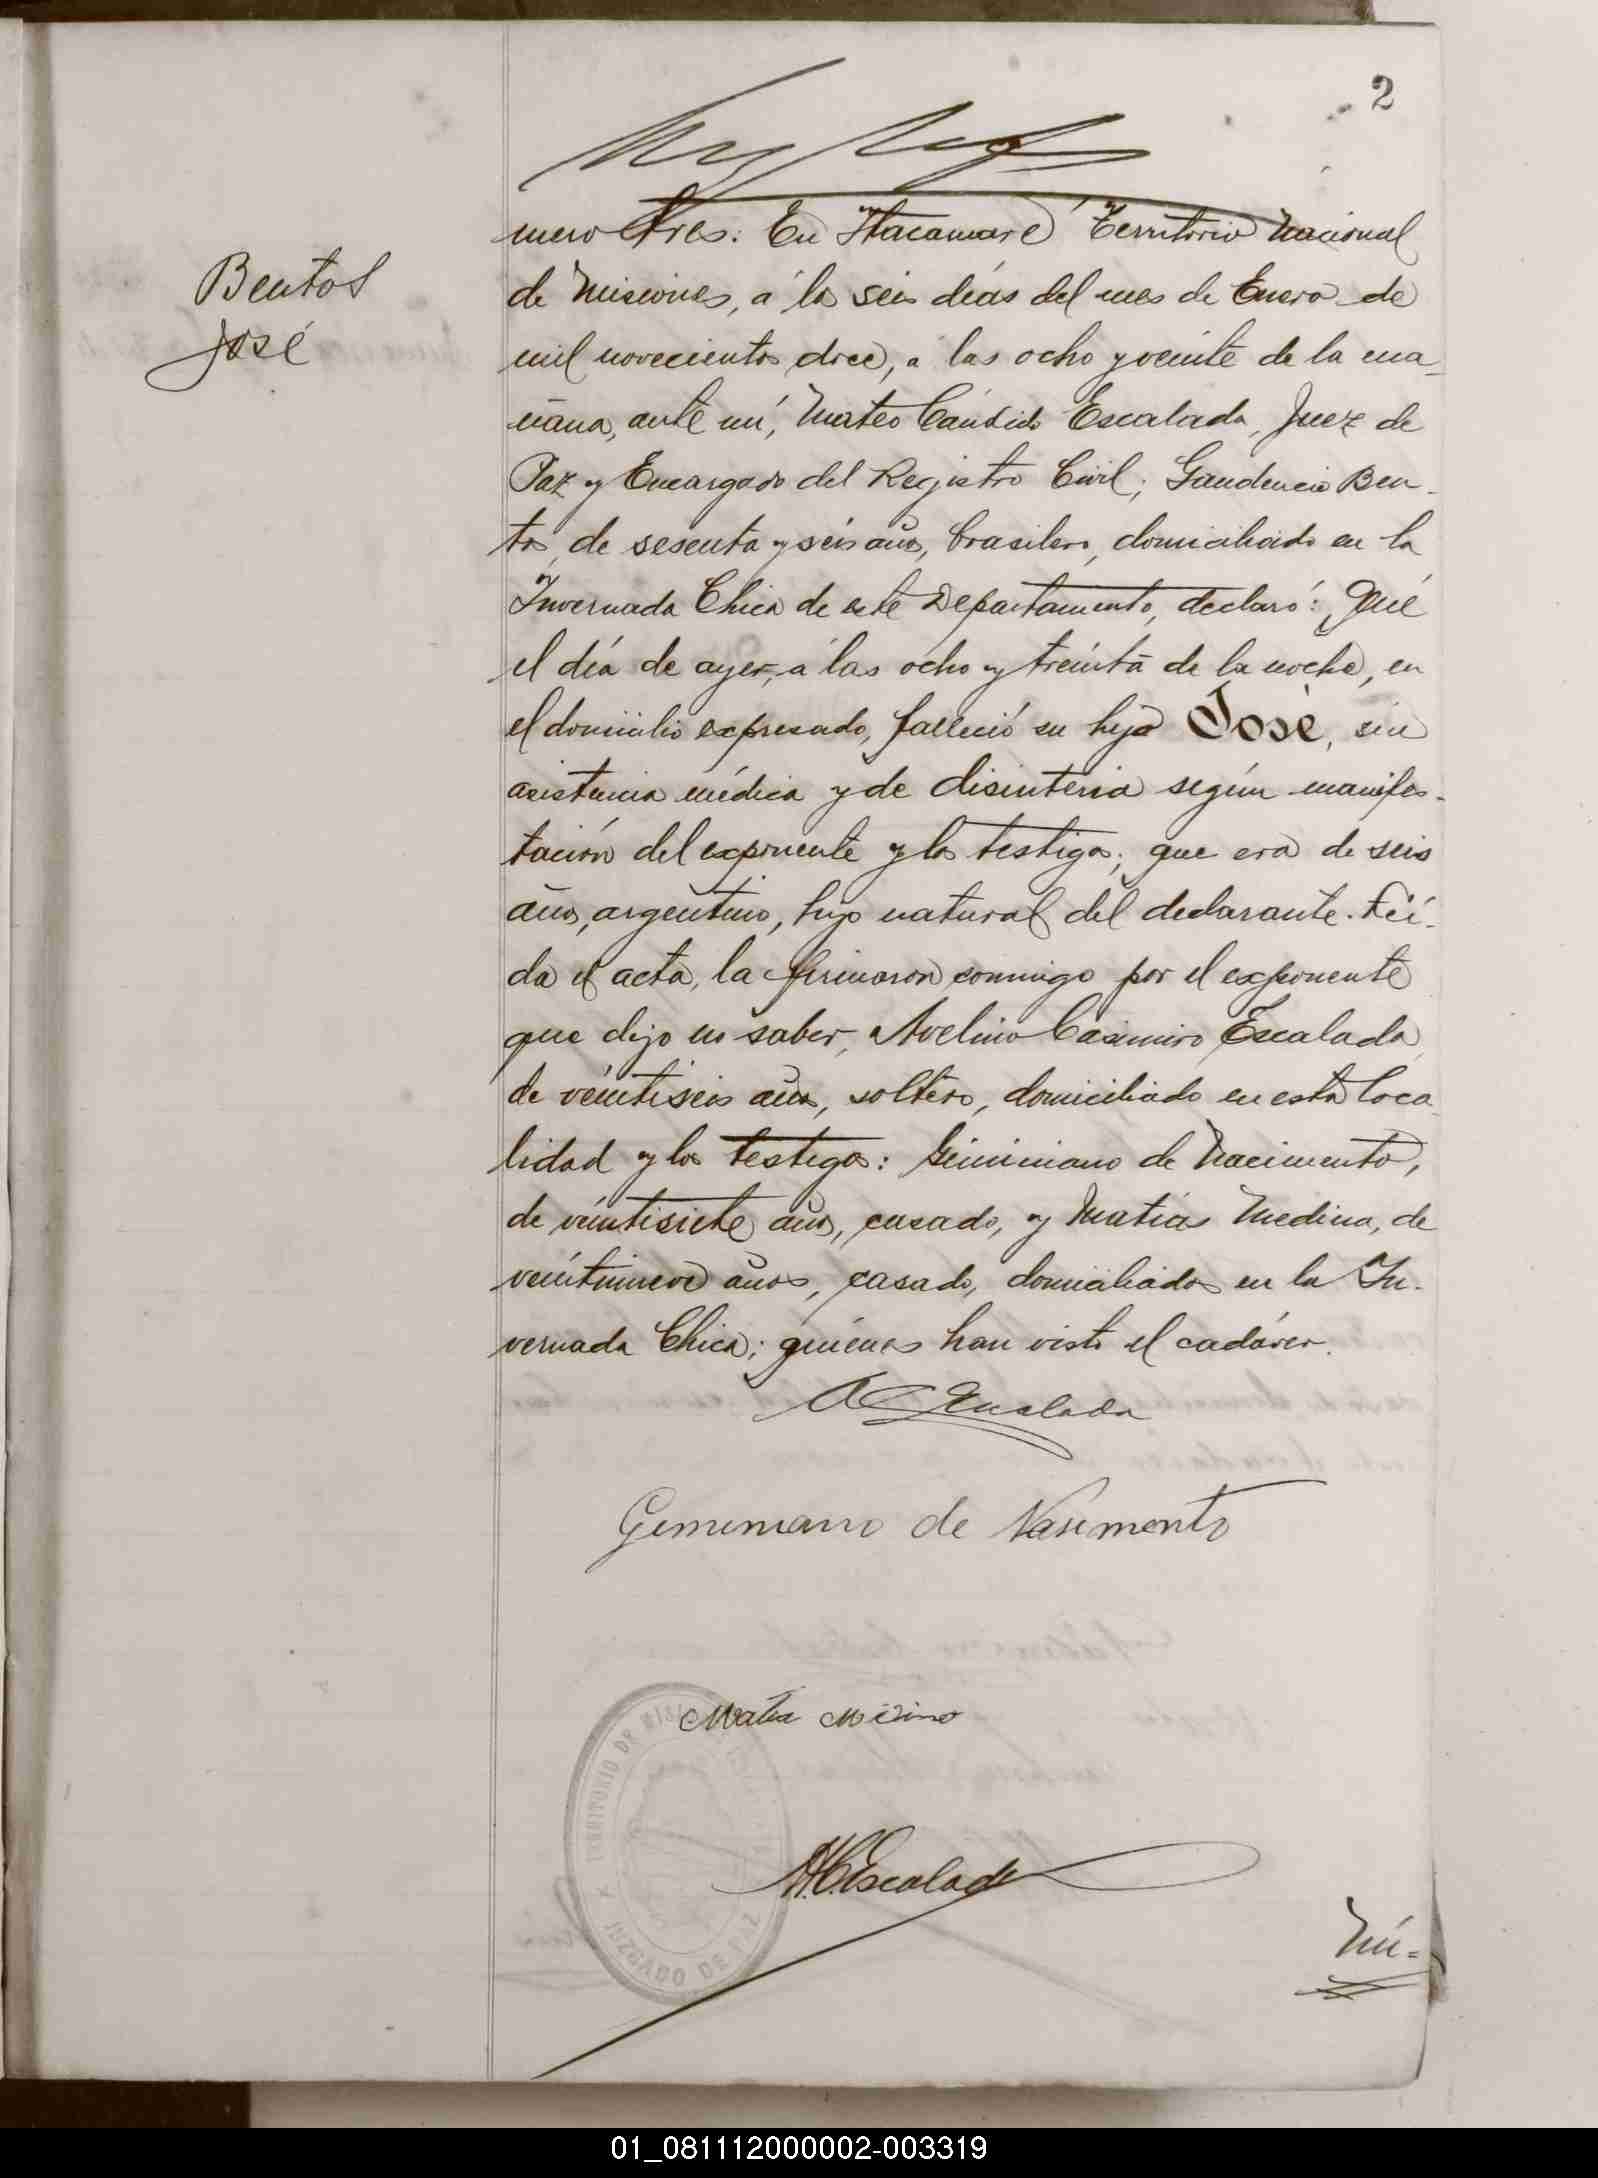 2
Bentos
José
mero tres: En Itacaruaré Territorio Nacional
de Misiones, á los seis días del mes de Enero de
mil novecientos doce, a las ocho y veinte de la ma-
ñana, ante mí, Mateo Cándido Escalada, Juez de
Paz y Encargado del Registro Civil; Gaudencio Ben-
tos, de sesenta y seis años, brasilero, domiciliado en la
Invernada Chica de este Departamento, declaró: Que
el día de ayer, á las ocho y treinta de la noche, en
el domicilio expresado, falleció su hijo José, sin
asistencia médica y de disinteria según manifes-
tación del exponente y los testigos; que era de seis
años, argentino, hijo natural del declarante. Leí-
da el acta, la firmaron conmigo por el exponente
que dijo no saber, Avelino Casimiro Escalada,
de veintiseis años, soltero, domiciliado en esta loca
lidad y los testigos: Geminiano de Nacimento,
de veintisiete años, casado, y Matías Medina, de
veintinueve años, casado, domiciliados en la In-
vernada Chica; quienes han visto el cadáver.
A C Escalada
Geminiano de Nasimento
Matia Medina
TERRITORIO DE MISIONES
JUZGADO DE PAZ
M.C. Escalada
Nú=
01_081112000002-003319